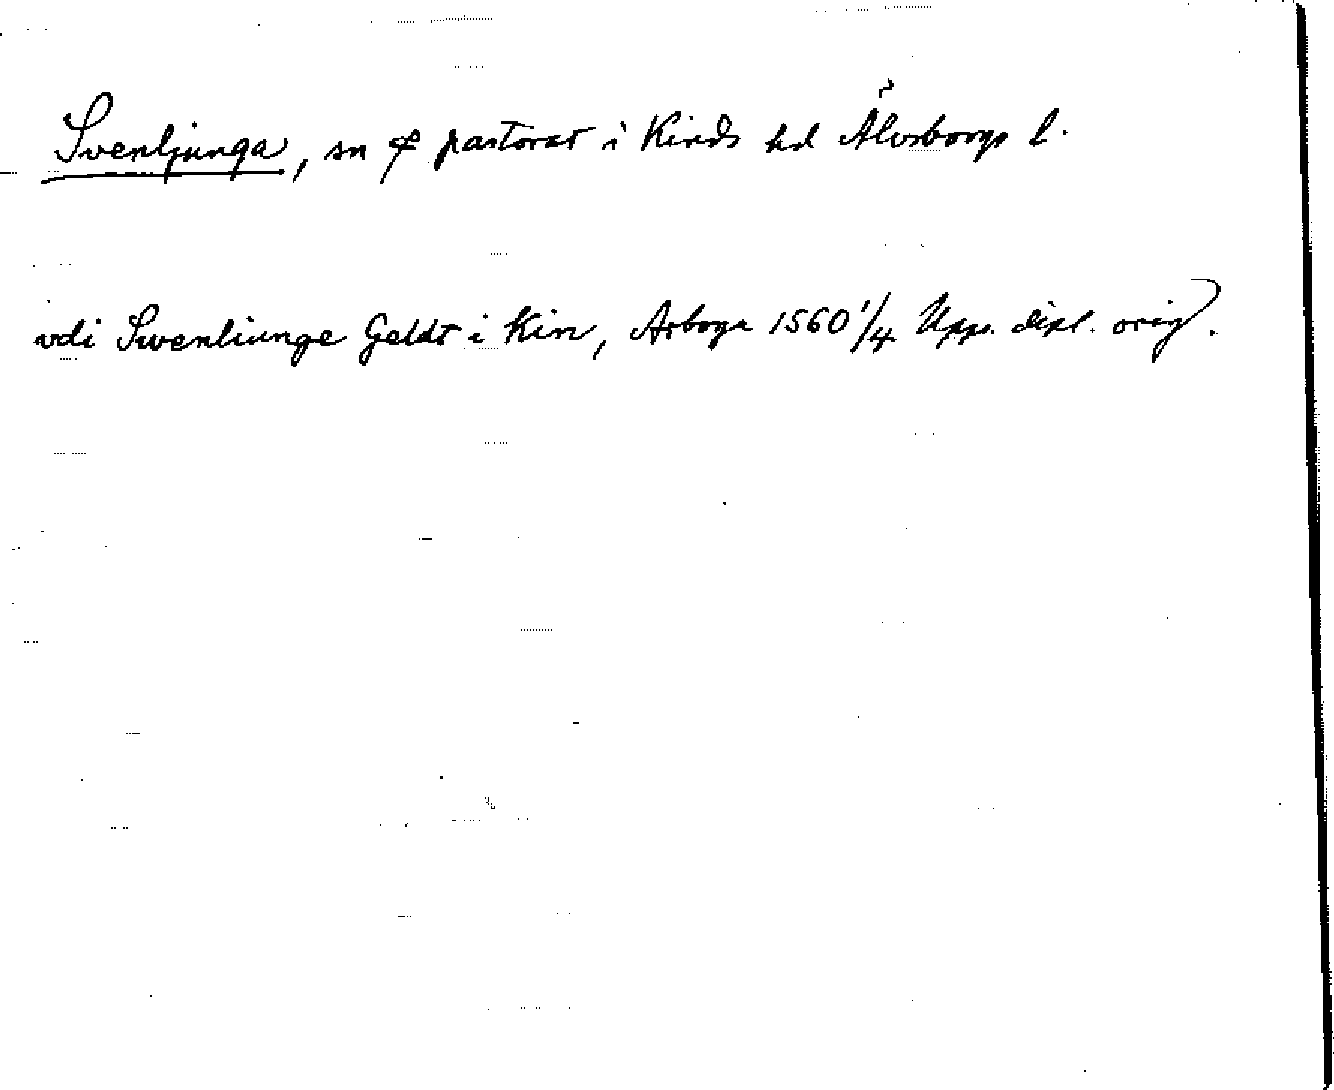 Svenljunga, sn & pastorat i Kinds hd Älvsborgs l.
vdi Swenliunge Geldt i Kin, Arboga 1560 1/4 Upps. dipl. orig.